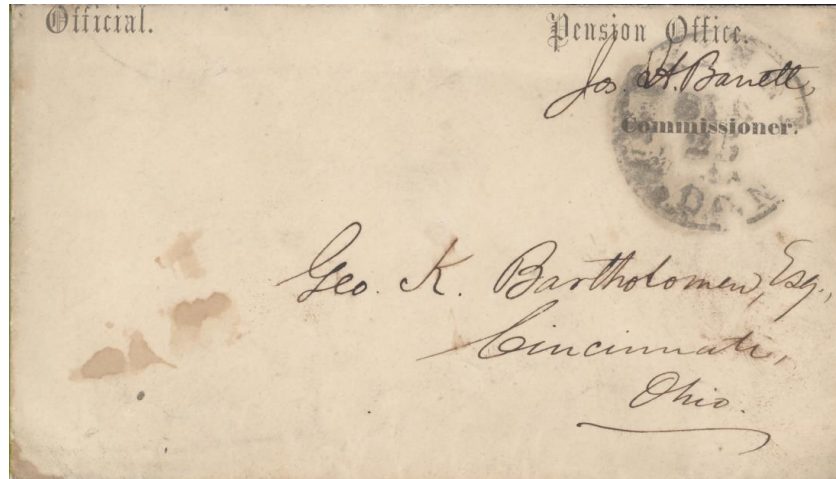 Official.
Pension Office.
Jos. H. Barrett,
Commissioner.
Geo. K. Bartholomew, Esq.,
Cincinnati,
Ohio.